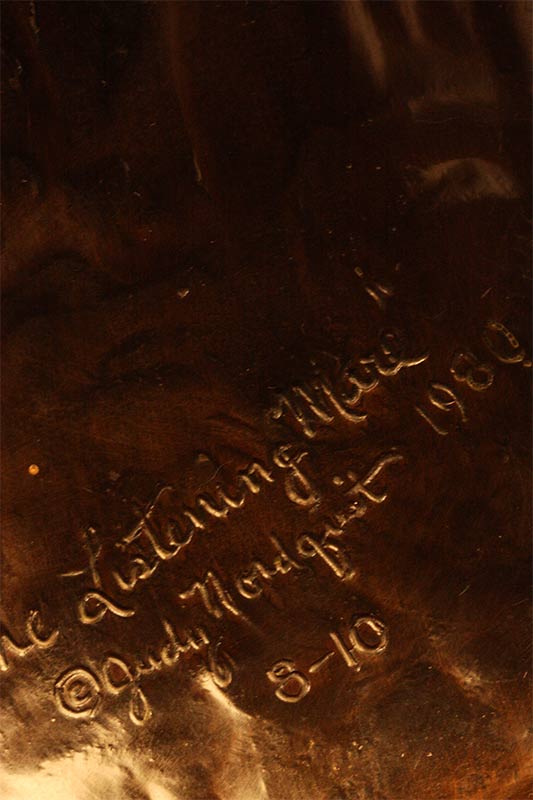 he Listening Mare
© Judy Nordquist 1980
8-10